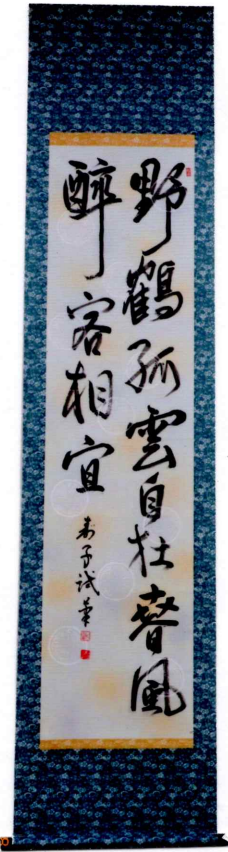 野鶴孤雲自在春風
酔客相宜
寿子試筆